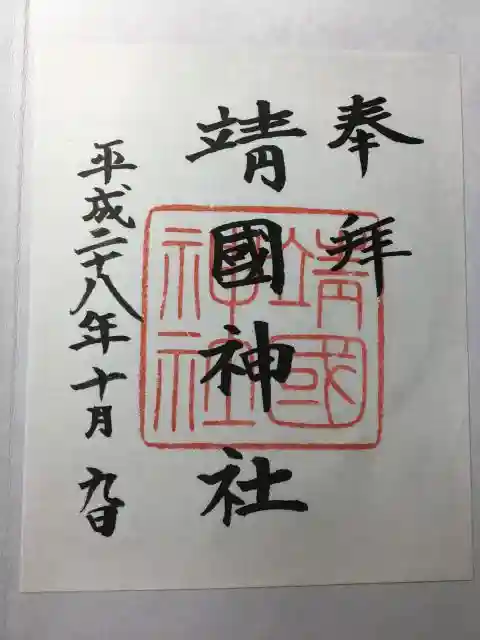 奉拝
靖國神社
靖國
神社
平成二十八年十月九日